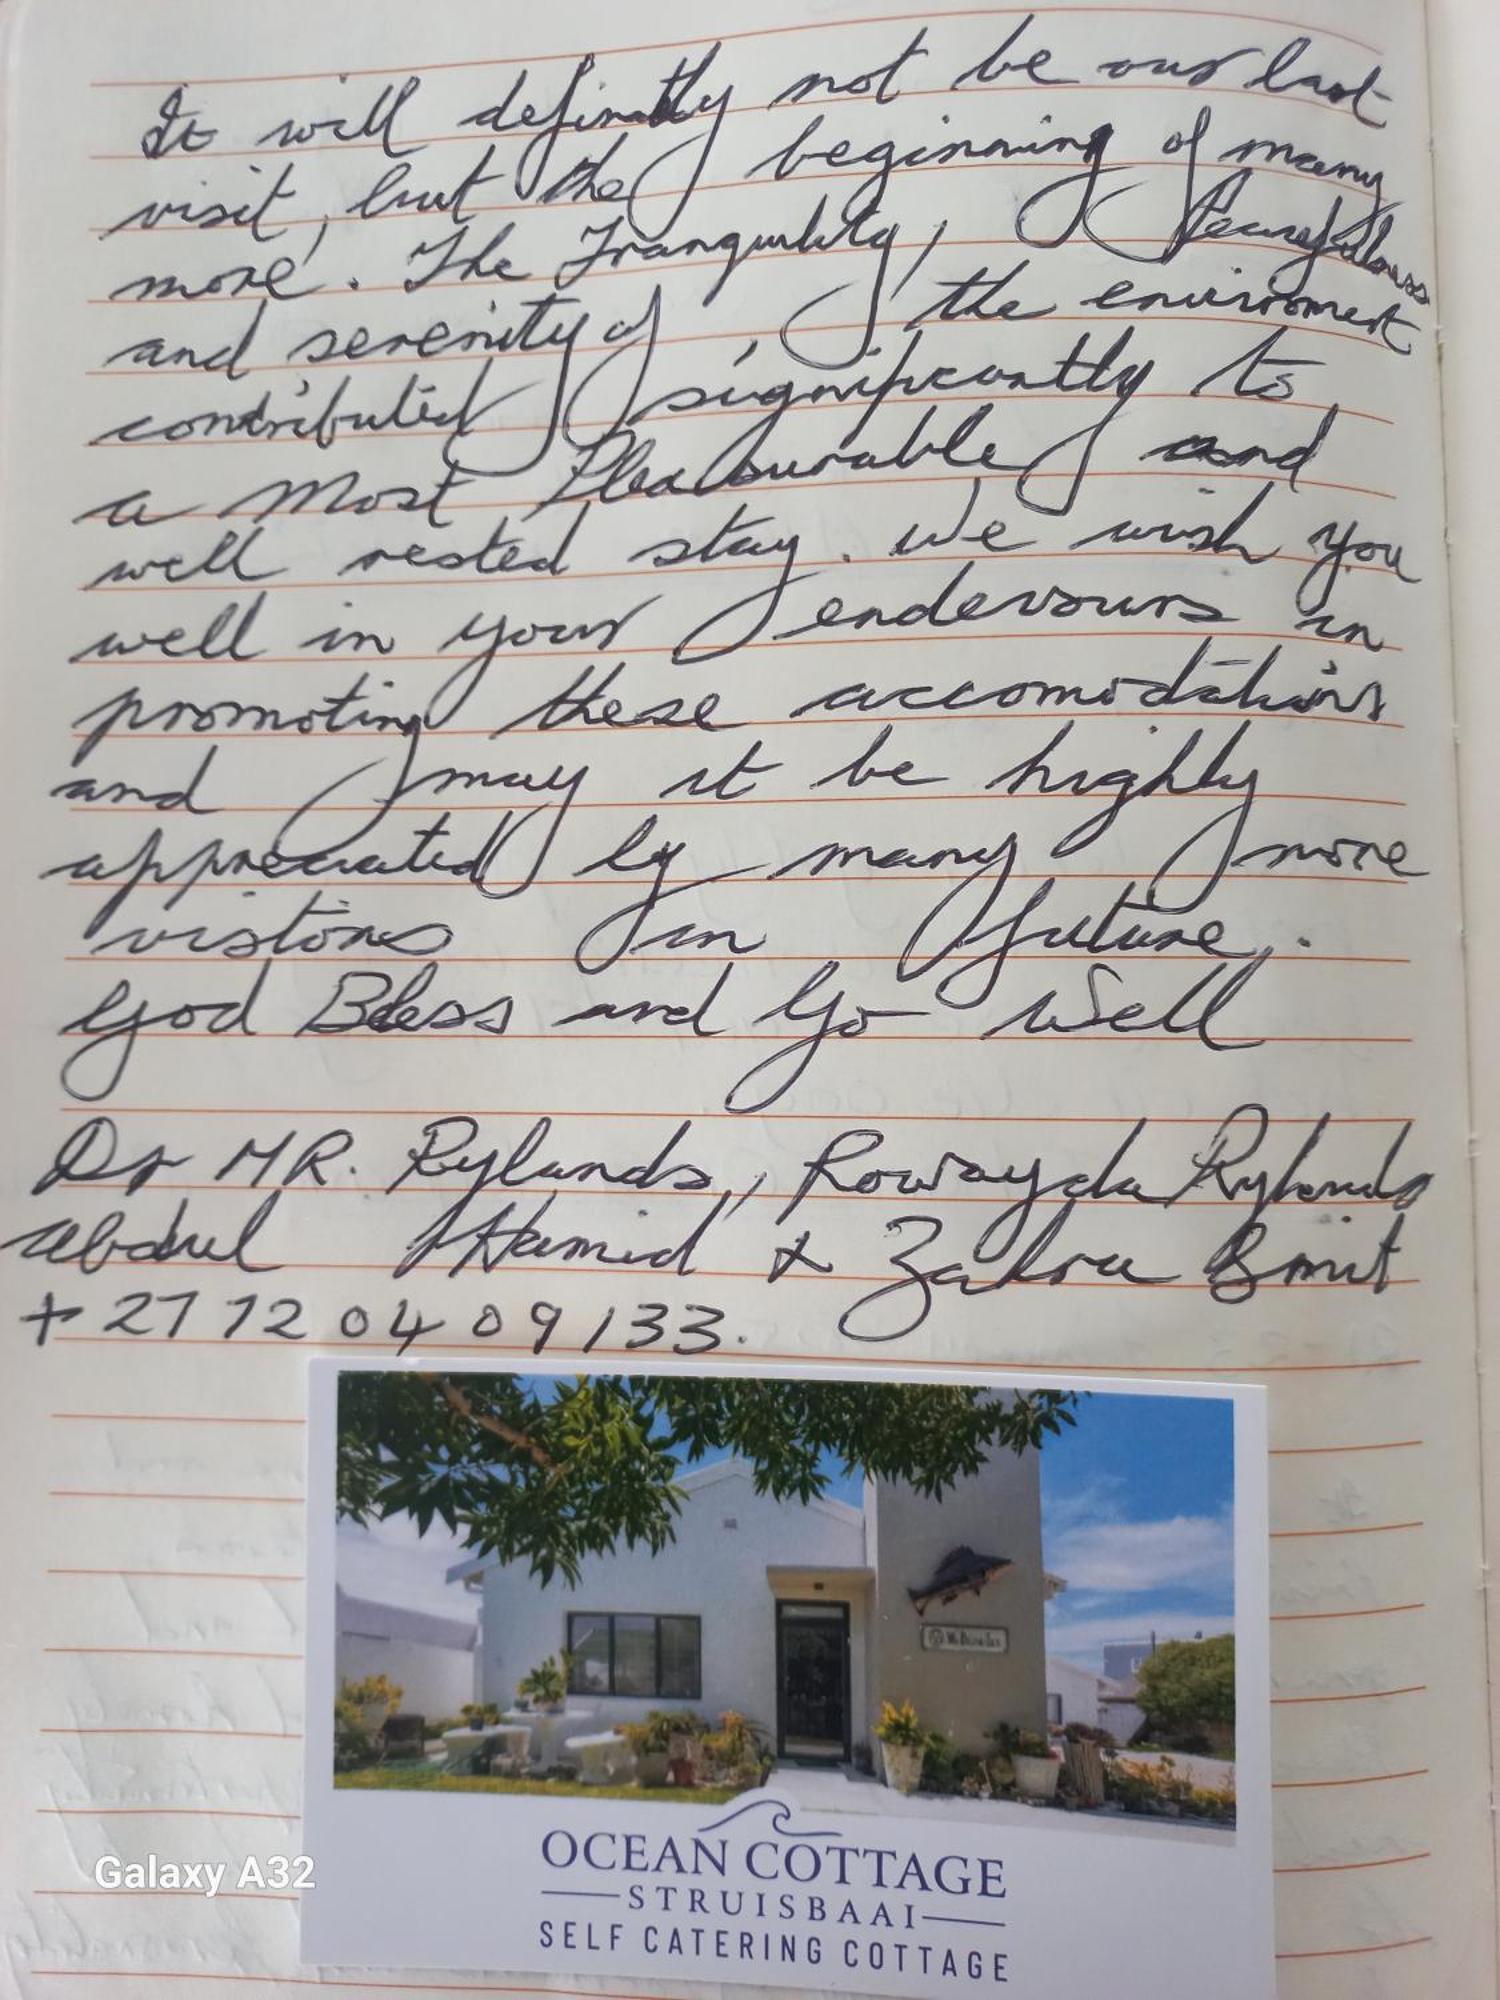 It will definatly not be our last
visit, but the beginning of many
more. The Tranquility, Peacefullness
and serenity of, the enviroment
contributed significantly to
a Most Pleasurable and
well rested stay. We wish you
well in your endevours in
promoting these accomodations
and may it be highly
appreciated by many more
vistors in future.
God Bless and Go Well
Dr MR. Rylands, Rowayda Rylands
abdul Hamid + Zahra Smit
+27 72 04 09133.
OCEAN COTTAGE
STRUISBAAI
SELF CATERING COTTAGE
Galaxy A32